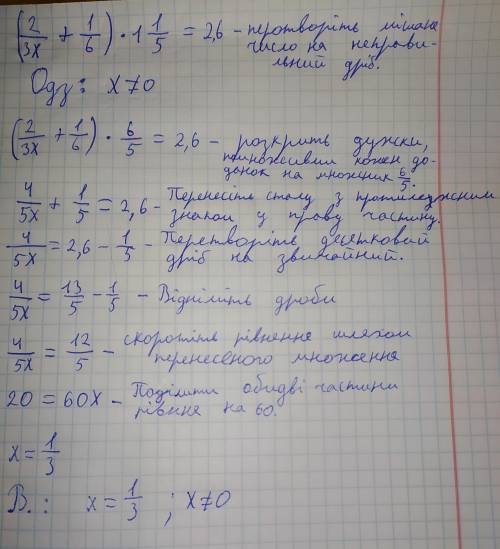 (2/3x + 1/6) · 1 1/5 = 2,6 - перотворіть мішане
число на неправи-
льний дріб.
Одз: x≠0
(2/3x + 1/6) · 6/5 = 2,6 - розкрить дужки,
помноживши кожен до-
данок на множник 6/5.
4/5x + 1/5 = 2,6 - Перенесіть сталу з протилежним
знаком у праву частину.
4/5x = 2,6 - 1/5 - Перетворіть десятковий
дріб на звичайний.
4/5x = 13/5 - 1/5 - Відніміть дроби
4/5x = 12/5 - скоротіть рівнення шляхом
перенесеного множення
20 = 60x - Поділити обидві частини
рівння на 60.
x = 1/3
В.: x = 1/3 ; x≠0